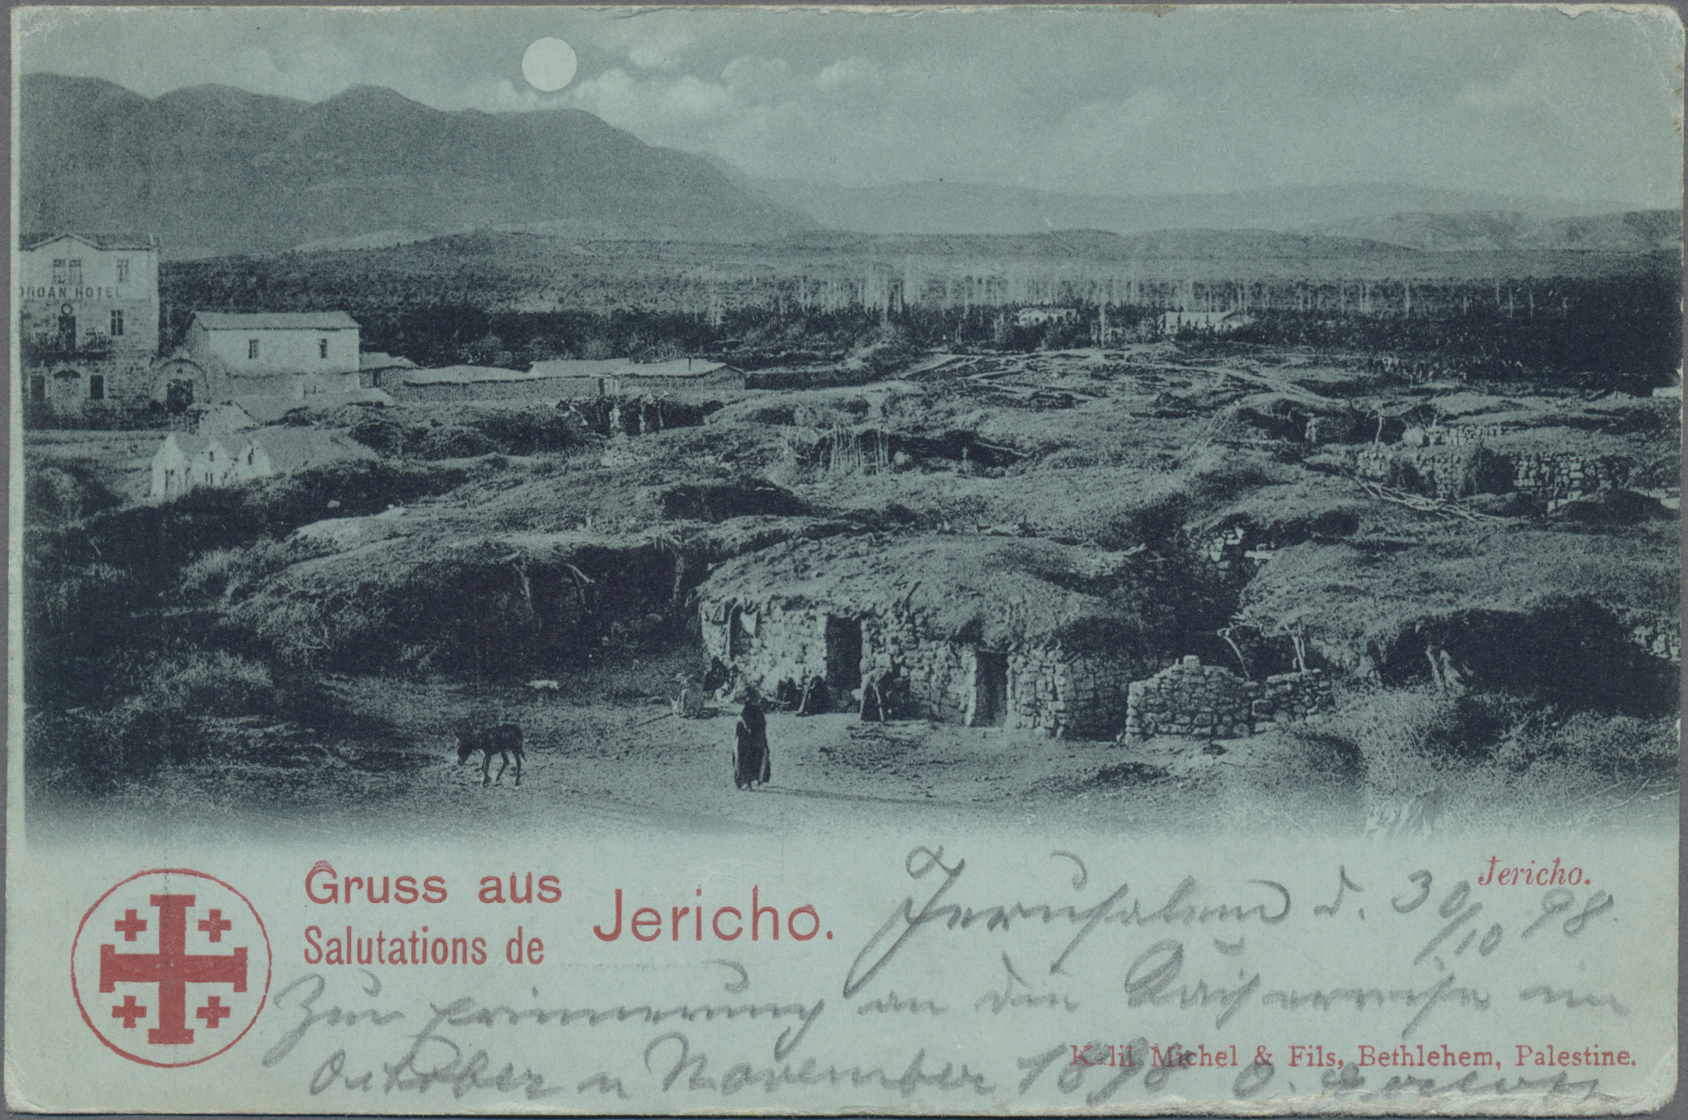 ORDAN HOTEL
Gruss aus
Salutations de
Jericho.
Jericho.
Jerusalem d. 30/10 98.
Zur Erinnerung an die Kaiserreise im
October u November 1898 O.
Kalil Michel & Fils, Bethlehem, Palestine.